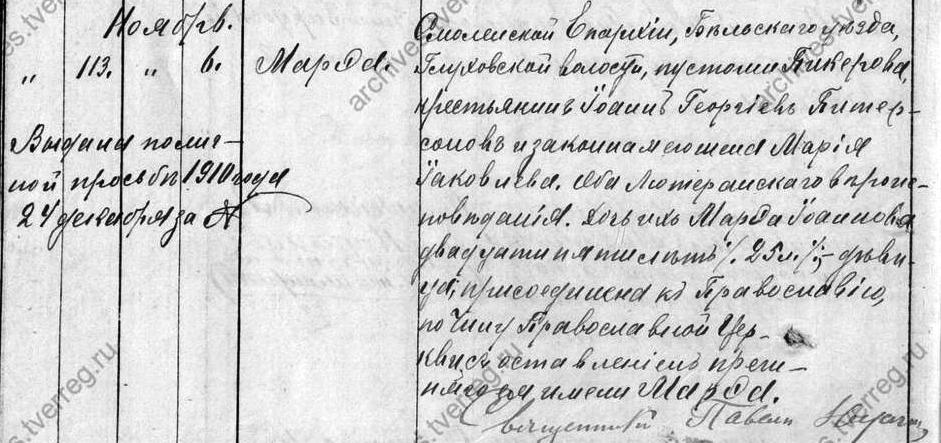 Ноябрь.
„ 113. „ 6.
Марѳа.
Выдана по лич-
ной просьбѣ 1910 года
24 декабря за №
Смоленской Епархіи, Бѣльскаго уѣзда,
Глуховской волости, пустоши Пикерова,
крестьянинъ Іоаннъ Георгіевъ Питер-
соновъ и законная его жена Марія
Іаковлева. Оба Лютеранскаго вѣроис-
повѣданія. Дочь ихъ Марѳа Іоаннова
двадцати пяти лѣтъ /. 25 л. /. дѣви-
ца, присоединена къ Православію,
по Чину Православной Цер-
кви съ оставленіемъ преж-
няго ея имени Марѳа.
Священникъ Павелъ
archives.tverreg.ru